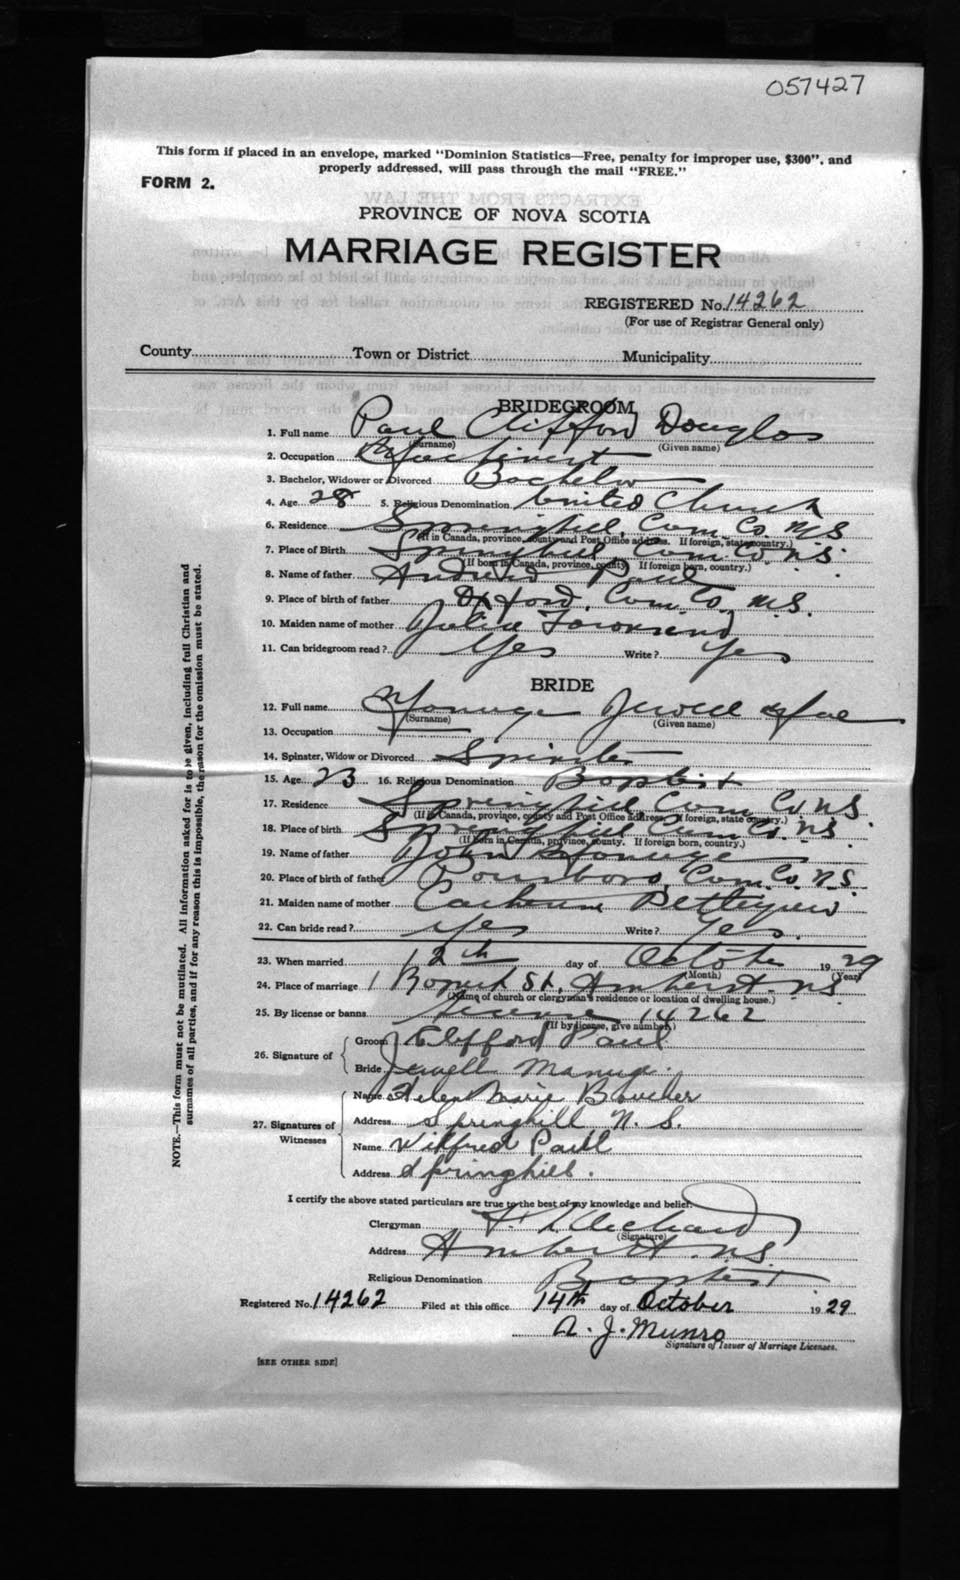 057427
This form if placed in an envelope, marked "Dominion Statistics—Free, penalty for improper use, $300", and
properly addressed, will pass through the mail "FREE."
FORM 2.
PROVINCE OF NOVA SCOTIA
MARRIAGE REGISTER
REGISTERED No. 14262
(For use of Registrar General only)
County Town or District Municipality
BRIDEGROOM
1. Full name Paul Clifford Douglas
(Surname) (Given name)
2. Occupation
3. Bachelor, Widower or Divorced Bachelor
4. Age 28 5. Religious Denomination United Church
6. Residence Springhill, Cum. Co. N.S.
(If in Canada, province, county and Post Office address. If foreign, state country.)
7. Place of Birth Springhill, Cum. Co. N.S.
(If born in Canada, province, county. If foreign born, country.)
8. Name of father Andrew Paul
9. Place of birth of father Oxford, Cum. Co. N.S.
10. Maiden name of mother Townsend
11. Can bridegroom read? Yes Write? Yes
BRIDE
12. Full name Jewell Mae
(Surname) (Given name)
13. Occupation
14. Spinster, Widow or Divorced Spinster
15. Age 23 16. Religious Denomination Baptist
17. Residence Springhill Cum. Co. N.S.
(If in Canada, province, county and Post Office address. If foreign, state country.)
18. Place of birth Springhill Cum. Co. N.S.
(If born in Canada, province, county. If foreign born, country.)
19. Name of father John
20. Place of birth of father Cum. Co. N.S.
21. Maiden name of mother
22. Can bride read? Yes Write? Yes.
23. When married 12th day of October 1929
(Month) (Year)
24. Place of marriage St. Amherst. N.S.
(Name of church or clergyman's residence or location of dwelling house.)
25. By license or banns license 14262
(If by license, give number.)
26. Signature of
Groom Clifford Paul
Bride Jewell
27. Signatures of Witnesses
Name Helen Marie Boucher
Address Springhill N. S.
Name Wilfred Paul
Address Springhill.
I certify the above stated particulars are true to the best of my knowledge and belief.
Clergyman
(Signature)
Address Amherst. N.S.
Religious Denomination Baptist
Registered No. 14262 Filed at this office 14th day of October 1929
A. J. Munro
Signature of Issuer of Marriage Licenses.
[SEE OTHER SIDE]
NOTE.—This form must not be mutilated. All information asked for is to be given, including full Christian and
surnames of all parties, and if for any reason this is impossible, the reason for the omission must be stated.